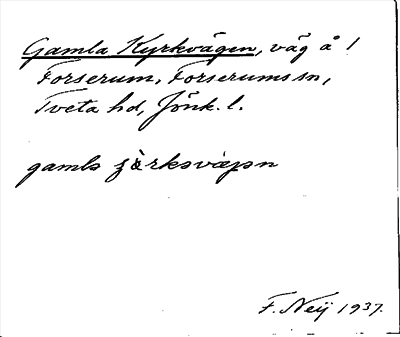 Gamla Kyrkvägen, väg å 1
Forserum, Forserums sn,
Tveta hd, Jönk. l.
gamla
F. Neij 1937.